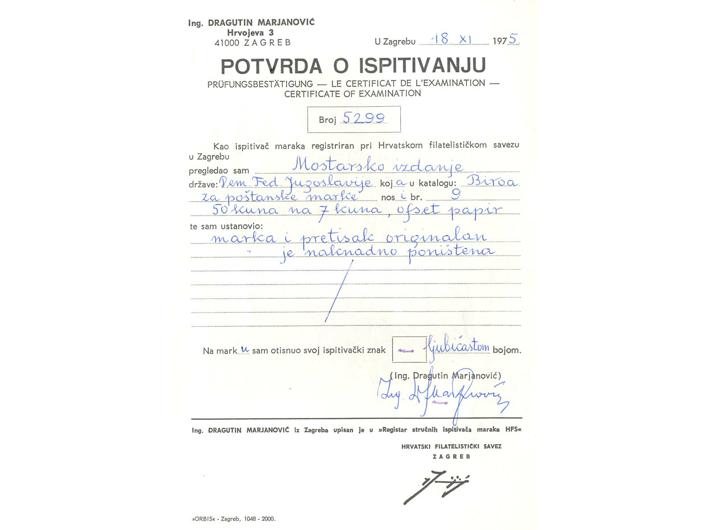 Ing. DRAGUTIN MARJANOVIĆ
Hrvojeva 3
41000 ZAGREB
U Zagrebu 18 XI 1975
POTVRDA O ISPITIVANJU
PRÜFUNGSBESTÄTIGUNG — LE CERTIFICAT DE L'EXAMINATION —
CERTIFICATE OF EXAMINATION
Broj 5299
Kao ispitivač maraka registriran pri Hrvatskom filatelističkom savezu
u Zagrebu
pregledao sam Mostarsko izdanje
države: Dem. Fed. Jugoslavije koja u katalogu: Biroa
za poštanske marke nosi br. 9
50 kuna na 7 kuna, ofset papir
te sam ustanovio:
marka i pretisak originalan
" je naknadno poništena
Na mark u sam otisnuo svoj ispitivački znak ljubičastom bojom.
(Ing. Dragutin Marjanović)
Ing D Marjanović
Ing. DRAGUTIN MARJANOVIĆ iz Zagreba upisan je u »Registar stručnih ispitivača maraka HFS«
HRVATSKI FILATELISTIČKI SAVEZ
ZAGREB
»ORBIS« - Zagreb, 1048 - 2000.